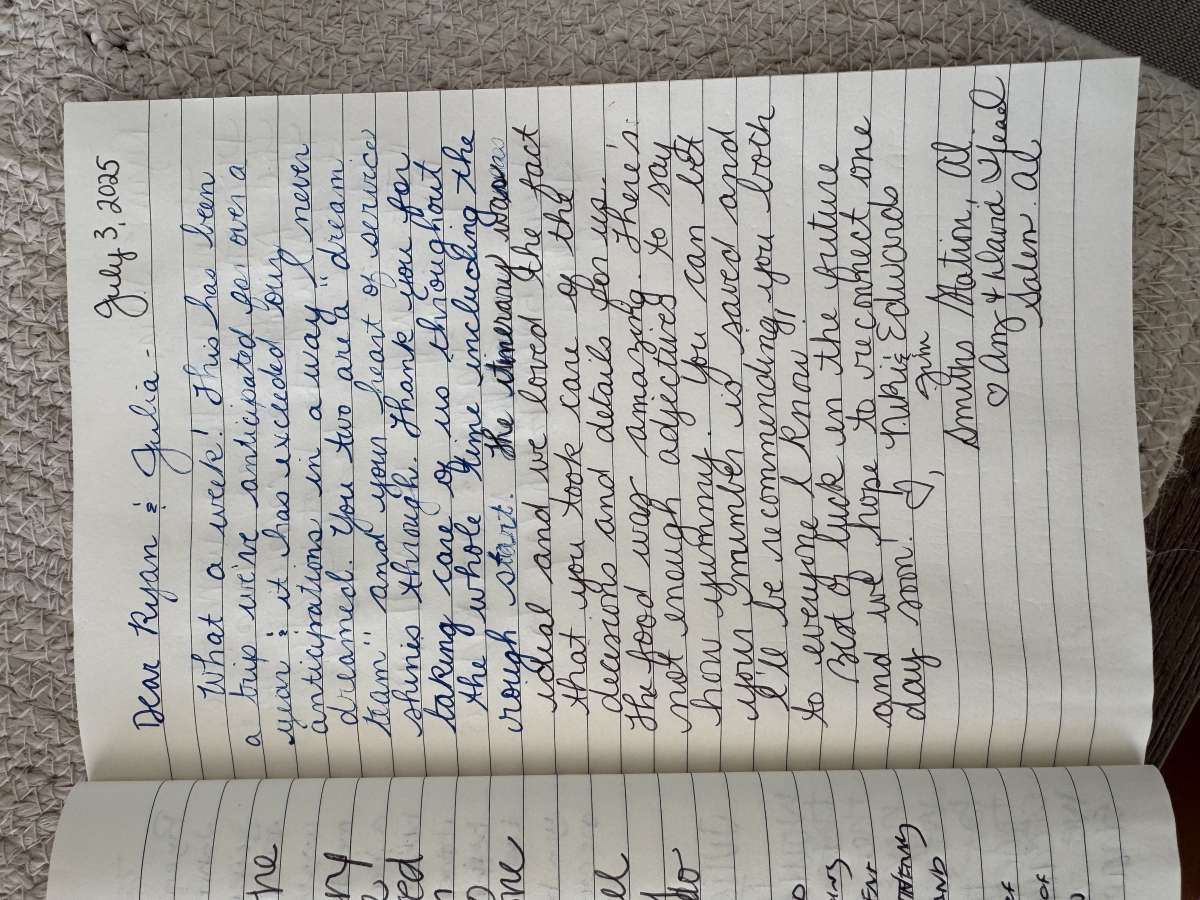 July 3, 2025
Dear Ryan & Julia -
What a week! This has been
a trip we've anticipated for over a
year & it has exceeded our
anticipations in a way I never
dreamed. You two are a "dream
team" and your heart of service
shines through. Thank you for
taking care of us throughout
the whole time including the
rough start. The itinerary was
ideal and we loved the fact
that you took care of the
decisions and details for us.
The food was amazing. There's
not enough adjectives to say
how yummy. You can bet
your number is saved and
I'll be recommending you both
to everyone I know.
Best of luck in the future
and we hope to reconnect one
day soon!
♡, Nikki & Edwards
Jim
Smiths Station, Al
♡ Amy & David
Salem, al
ne
ny
ed
ne
ell
to
ING
ENT
AND
OF
OF